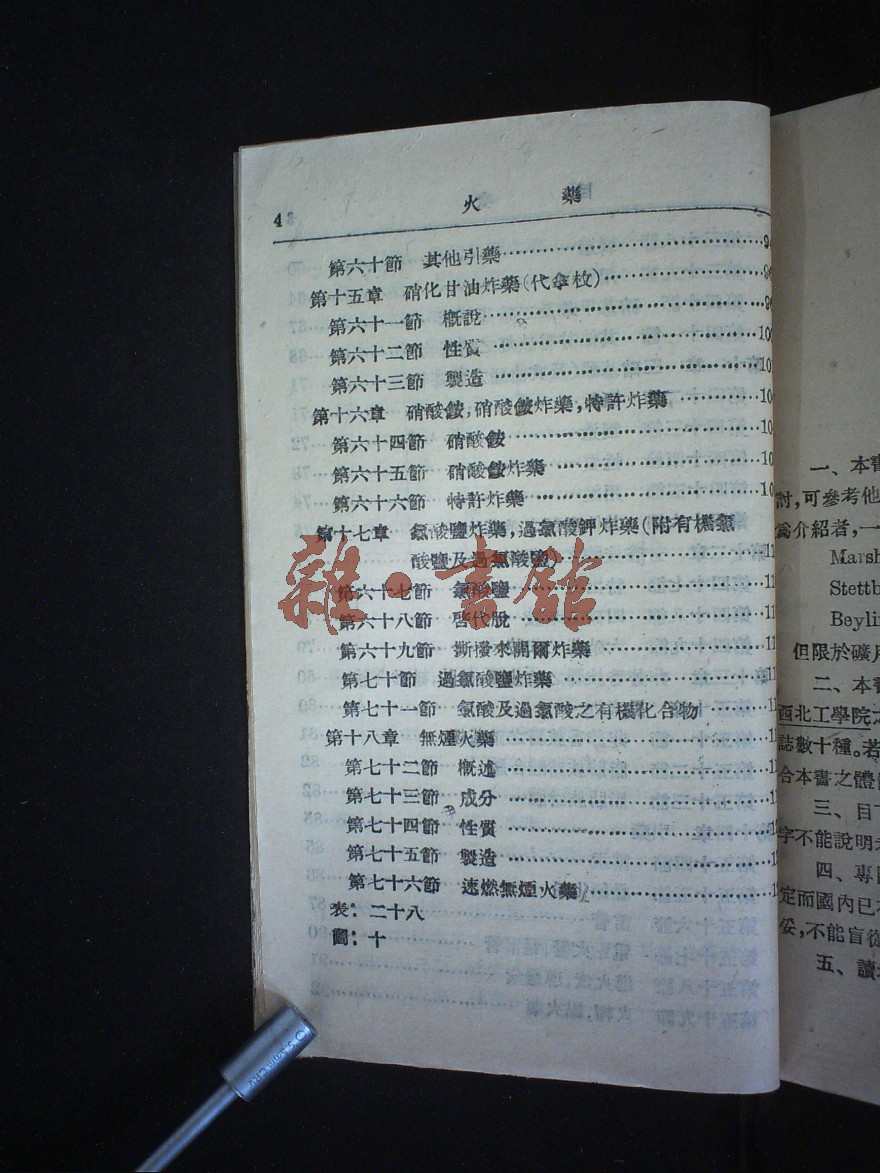 4 火藥
第六十節 其他引藥
第十五章 硝化甘油炸藥(代拿枚)
第六十一節 概說
第六十二節 性質
第六十三節 製造
第十六章 硝酸銨,硝酸銨炸藥,特許炸藥
第六十四節 硝酸銨
第六十五節 硝酸銨炸藥
第六十六節 特許炸藥
第十七章 氯酸鹽炸藥,過氯酸鉀炸藥(附有機氯
酸鹽及過氯酸鹽)
第六十七節 氯酸鹽
第六十八節 啓代脫
第六十九節 撕撥來開爾炸藥
第七十節 過氯酸鹽炸藥
第七十一節 氯酸及過氯酸之有機化合物
第十八章 無煙火藥
第七十二節 概述
第七十三節 成分
第七十四節 性質
第七十五節 製造
第七十六節 速燃無煙火藥
表:二十八
圖:十
雜·書館
一、本書
討,可參考他
爲介紹者,一
Marsh
Stettb
Beyli
但限於礦
二、本書
西北工學院
誌數十種。若
合本書之體
三、目
字不能說明
四、專
定而國內已
妥,不能盲從
五、讀